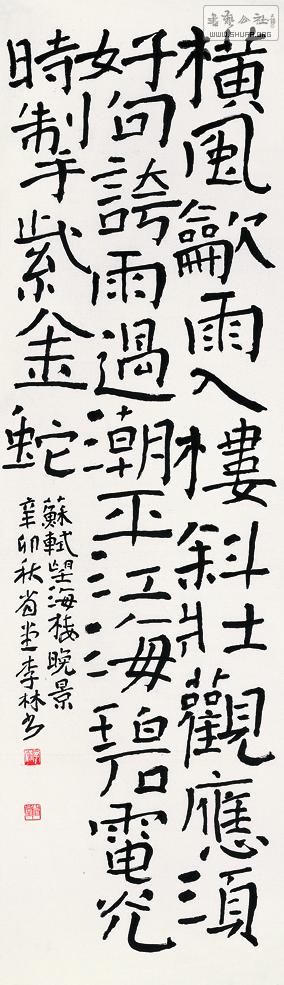 書藝公社
WWW.SHUFA.ORG
橫風龡雨入樓斜壯觀應須
好句誇雨過潮平江海碧電光
時掣紫金蛇
蘇軾望海樓晚景
辛卯秋省堂李林书